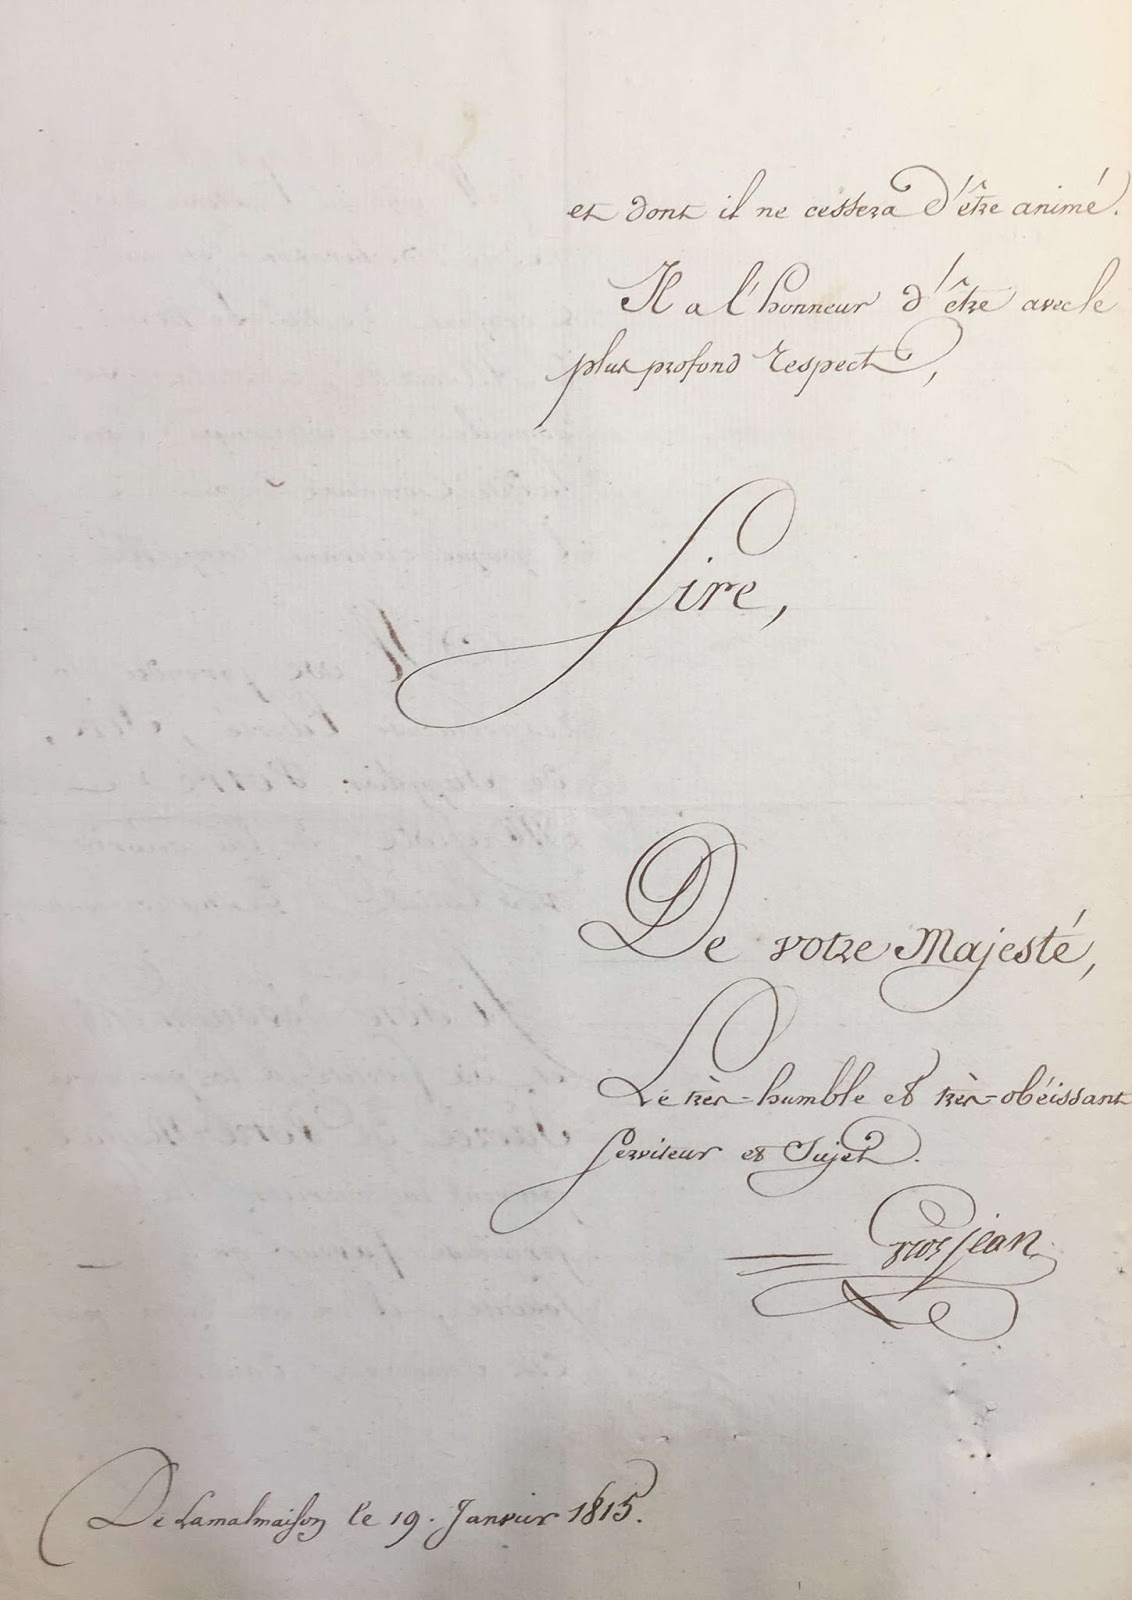 et dont il ne cessera d'être animé.
Il a l'honneur d'être avec le
plus profond respect,
Sire,
De votre Majesté,
Le très-humble et très-obéissant
serviteur et Sujet.
Grosjean
De Lamalmaison le 19. Janvier 1815.